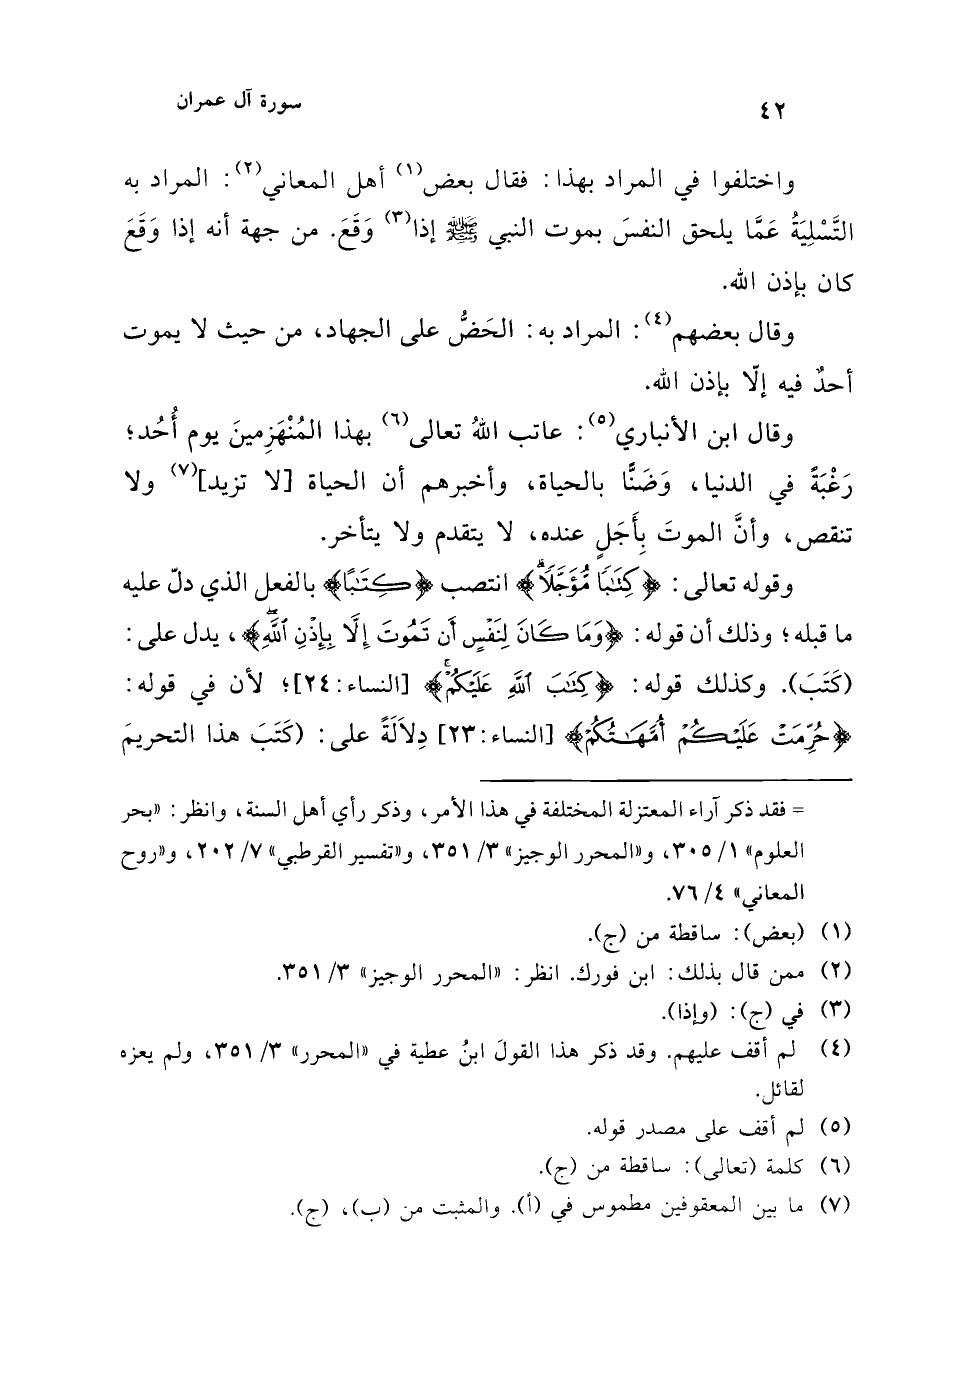 ٤٢
سورة آل عمران
واختلفوا في المراد بهذا: فقال بعض(١) أهل المعاني(٢): المراد به
التَّسْلِيَةُ عَمَّا يلحق النفسَ بموت النبي ﷺ إذا(٣) وَقَعَ. من جهة أنه إذا وَقَعَ
كان بإذن الله.
وقال بعضهم(٤): المراد به: الحَضُّ على الجهاد، من حيث لا يموت
أحدٌ فيه إلّا بإذن الله.
وقال ابن الأنباري(٥): عاتب اللهُ تعالى(٦) بهذا المُنْهَزِمينَ يوم أُحُد؛
رَغْبَةً في الدنيا، وَضَنًّا بالحياة، وأخبرهم أن الحياة [لا تزيد](٧) ولا
تنقص، وأنَّ الموتَ بِأَجَلٍ عنده، لا يتقدم ولا يتأخر.
وقوله تعالى: ﴿كِتَٰبًا مُّؤَجَّلًاۗ﴾ انتصب ﴿كِتَٰبًا﴾ بالفعل الذي دلّ عليه
ما قبله؛ وذلك أن قوله: ﴿وَمَا كَانَ لِنَفْسٍ أَن تَمُوتَ إِلَّا بِإِذْنِ ٱللَّهِ﴾، يدل على:
(كَتَبَ). وكذلك قوله: ﴿كِتَٰبَ ٱللَّهِ عَلَيْكُمْۚ﴾ [النساء:٢٤]؛ لأن في قوله:
﴿حُرِّمَتْ عَلَيْكُمْ أُمَّهَٰتُكُمْ﴾ [النساء:٢٣] دِلاَلَةً على: (كَتَبَ هذا التحريمَ
= فقد ذكر آراء المعتزلة المختلفة في هذا الأمر، وذكر رأي أهل السنة، وانظر: «بحر
العلوم» ١/ ٣٠٥، و«المحرر الوجيز» ٣/ ٣٥١، و«تفسير القرطبي» ٧/ ٢٠٢، و«روح
المعاني» ٤/ ٧٦.
(١) (بعض): ساقطة من (ج).
(٢) ممن قال بذلك: ابن فورك. انظر: «المحرر الوجيز» ٣/ ٣٥١.
(٣) في (ج): (وإذا).
(٤) لم أقف عليهم. وقد ذكر هذا القولَ ابنُ عطية في «المحرر» ٣/ ٣٥١، ولم يعزه
لقائل.
(٥) لم أقف على مصدر قوله.
(٦) كلمة (تعالى): ساقطة من (ج).
(٧) ما بين المعقوفين مطموس في (أ). والمثبت من (ب)، (ج).